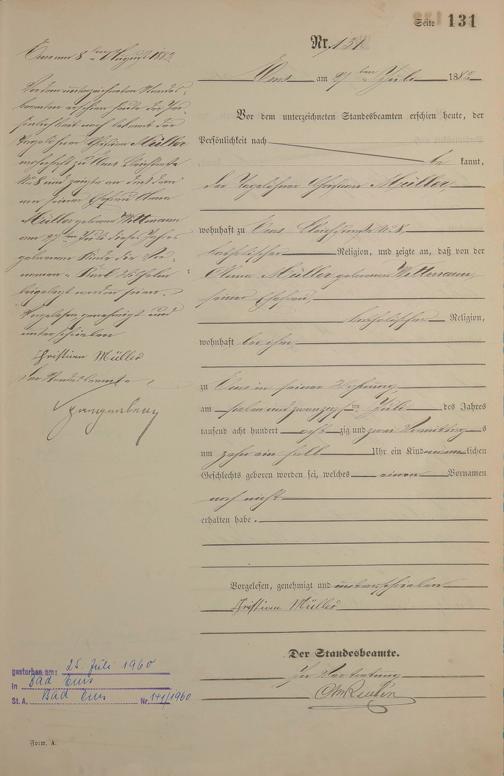 Seite 131
Nr. 131
Ems am 29ten Juli 1882
Vor dem unterzeichneten Standesbeamten erschien heute, der
Persönlichkeit nach
be kannt,
der Tagelöhner Christian Müller,
wohnhaft zu Ems
katholischer Religion, und zeigte an, daß von der
Anna Müller geborenen Wittemann,
seiner Ehefrau,
katholischer Religion,
wohnhaft bei ihm,
zu Ems in seiner Wohnung
am sieben und zwanzigsten Juli des Jahres
tausend acht hundert acht zig und zwei Vormittags
um zehn ein halb Uhr ein Kind männlichen
Geschlechts geboren worden sei, welches einen Vornamen
noch nicht
erhalten habe.
Vorgelesen, genehmigt und unterschrieben
Christian Müller
Der Standesbeamte.
In Vertretung
Ems am 8ten August 1882
Vor dem unterzeichneten Standes-
beamten erschien heute der Per-
sönlichkeit nach bekannt der
Tagelöhner Christian Müller
wohnhaft zu Ems
No 8 und zeigte an, daß dem
von seiner Ehefrau Anna
Müller geborene Wittemann
am 27ten Juli dieses Jahres
geborenen Kinde die Vor-
namen Karl
beigelegt worden seien.
Vorgelesen, genehmigt und
unterschrieben
Christian Müller
Der Standesbeamte,
Spangenberg
gestorben am: 25. Juli 1960
in Bad Ems
St. A. Bad Ems Nr. 141/1960
Form. A.